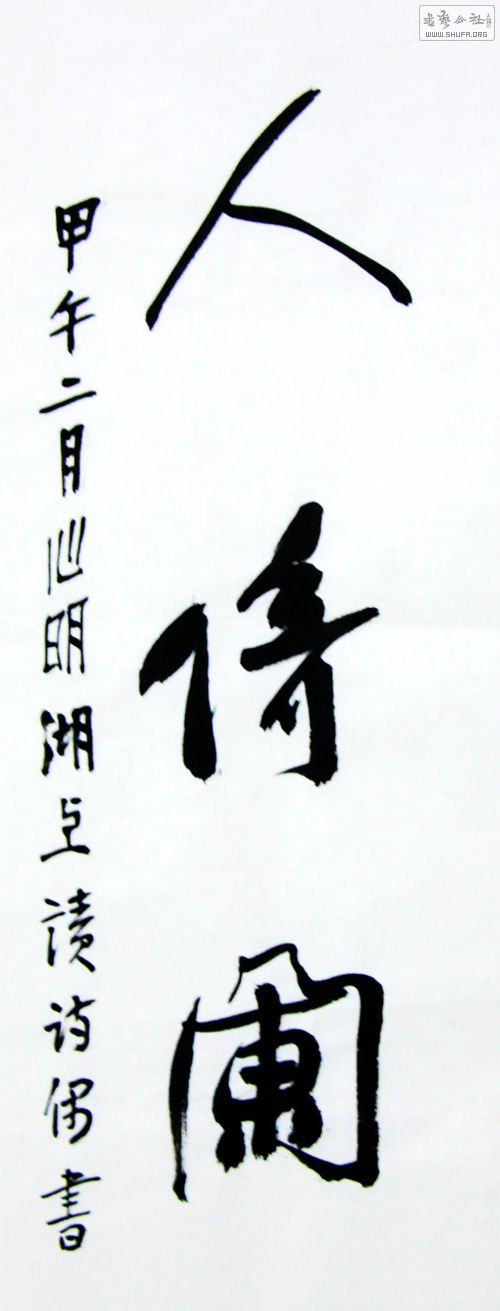 人倚闌
甲午二月四明湖上讀詩偶書
書藝公社
WWW.SHUFA.ORG